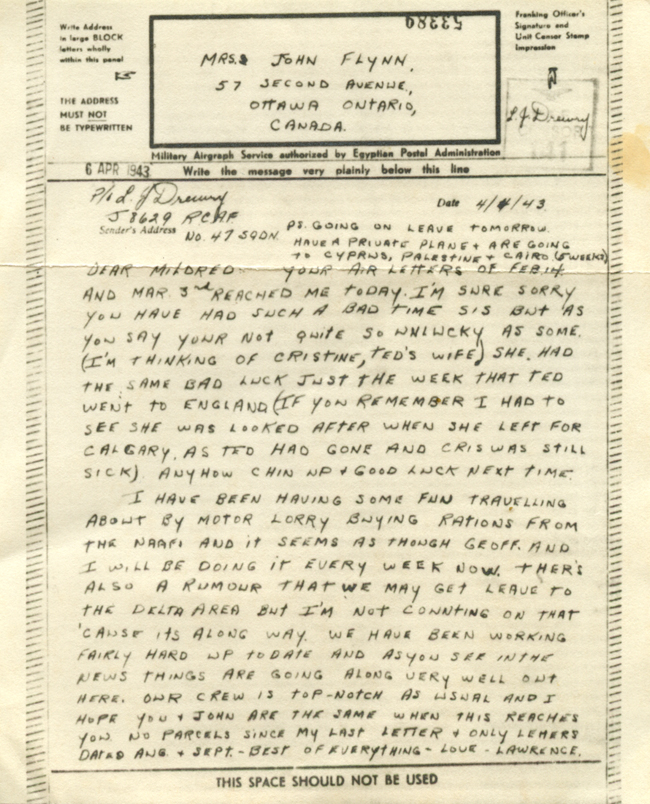 Write Address
in large BLOCK
letters wholly
within this panel
THE ADDRESS
MUST NOT
BE TYPEWRITTEN
53380
MRS. JOHN FLYNN,
57 SECOND AVENUE,
OTTAWA ONTARIO,
CANADA.
Franking Officer's
Signature and
Unit Censor Stamp
Impression
L.J. Drewry
Military Airgraph Service authorized by Egyptian Postal Administration
6 APR 1943
Write the message very plainly below this line
P/O L. J Drewry
J 8629 RCAF
Sender's Address No. 47 SQDN.
Date 4/4/43.
PS. GOING ON LEAVE TOMORROW.
HAVE A PRIVATE PLANE & ARE GOING
TO CYPRUS, PALESTINE & CAIRO (5 WEEKS)
DEAR MILDRED: YOUR AIR LETTERS OF FEB. 14
AND MAR. 3rd REACHED ME TODAY. I'M SURE SORRY
YOU HAVE HAD SUCH A BAD TIME SIS BUT AS
YOU SAY YOUR NOT QUITE SO UNLUCKY AS SOME.
(I'M THINKING OF CRISTINE, TED'S WIFE) SHE. HAD
THE SAME BAD LUCK JUST THE WEEK THAT TED
WENT TO ENGLAND (IF YOU REMEMBER I HAD TO
SEE SHE WAS LOOKED AFTER WHEN SHE LEFT FOR
CALGARY, AS TED HAD GONE AND CRIS WAS STILL
SICK). ANYHOW CHIN UP & GOOD LUCK NEXT TIME.
I HAVE BEEN HAVING SOME FUN TRAVELLING
ABOUT BY MOTOR LORRY BUYING RATIONS FROM
THE NAAFI AND IT SEEMS AS THOUGH GEOFF. AND
I WILL BE DOING IT EVERY WEEK NOW. THER'S
ALSO A RUMOUR THAT WE MAY GET LEAVE TO
THE DELTA AREA BUT I'M NOT COUNTING ON THAT
'CAUSE ITS ALONG WAY. WE HAVE BEEN WORKING
FAIRLY HARD UP TO DATE AND AS YOU SEE IN THE
NEWS THINGS ARE GOING ALONG VERY WELL OUT
HERE. OUR CREW IS TOP-NOTCH AS USUAL AND I
HOPE YOU & JOHN ARE THE SAME WHEN THIS REACHES
YOU. NO PARCELS SINCE MY LAST LETTER & ONLY LETTERS
DATED AUG. & SEPT. - BEST OF EVERYTHING - LOVE - LAWRENCE.
THIS SPACE SHOULD NOT BE USED